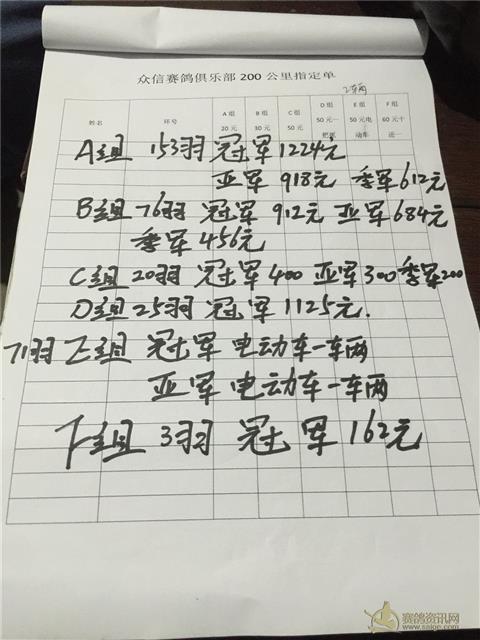 众信赛鸽俱乐部 200 公里指定单
2车两
姓名 环号 A 组 20 元 B 组 30 元 C 组 50 元 D 组 50 元一把抓 E 组 50 元电动车 F 组 60 元十进一
A组 153羽 冠军1224元
亚军 918元 季军612元
B组76羽 冠军 912元 亚军684元
季军456元
C组20羽 冠军400 亚军300季军200
D组25羽 冠军 1125元.
71羽 E组 冠军 电动车一车两
亚军 电动车一车两
F组 3羽 冠军162元
赛鸽资讯网
www.saige.com